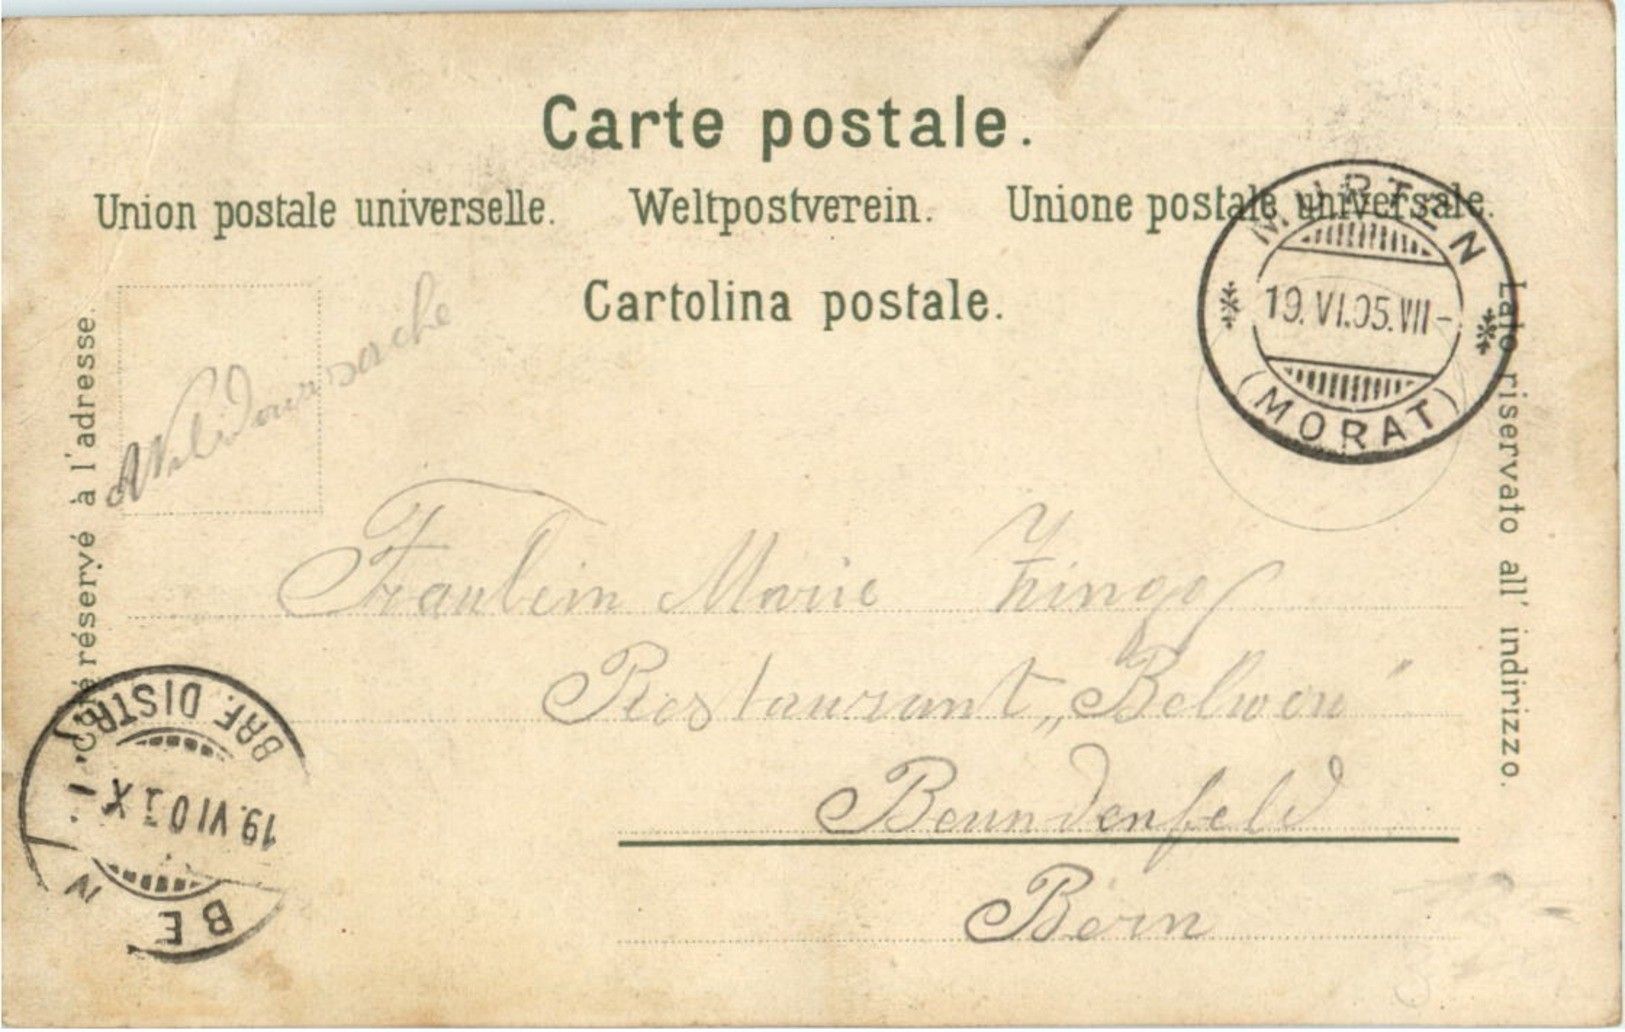 Carte postale.
Union postale universelle. Weltpostverein. Unione postale universale.
Cartolina postale.
Côté réservé à l'adresse.
Lato riservato all' indirizzo.
MURTEN
19.VI.05.VII-
(MORAT)
Fraulein Marie
Restaurant „
Beundenfeld
Bern
BRF. DISTR.
19.VI
BE N